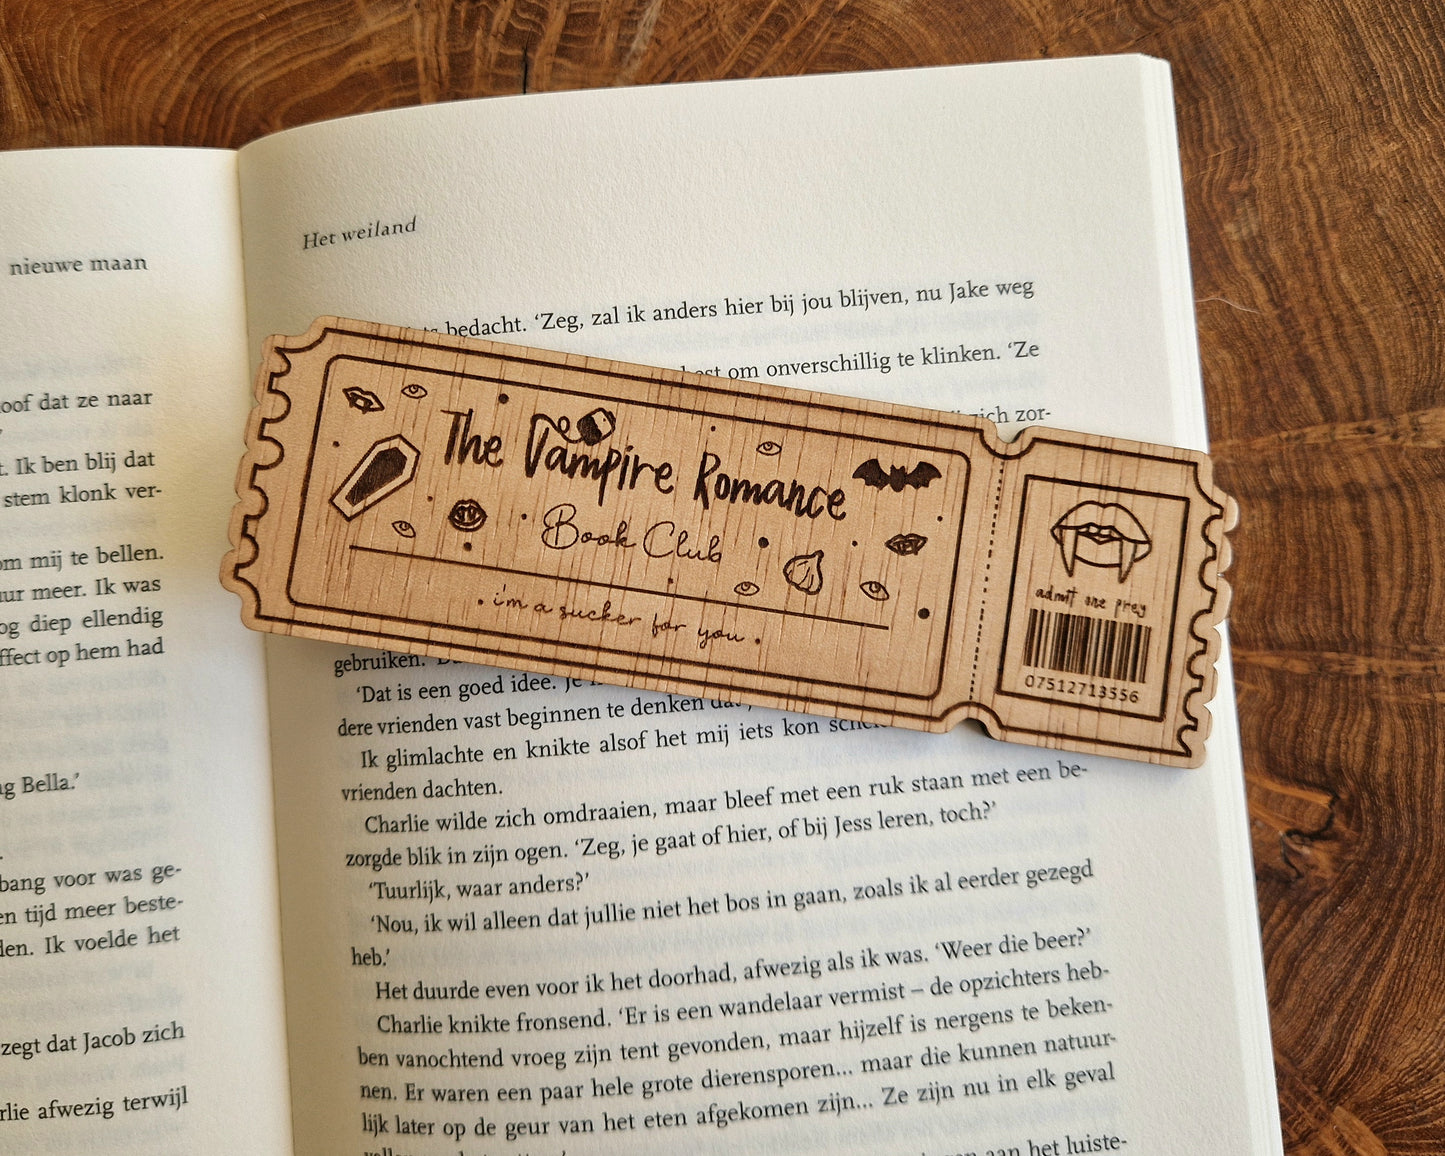 nieuwe maan
oof dat ze naar
t. Ik ben blij dat
stem klonk ver-
om mij te bellen.
uur meer. Ik was
og diep ellendig
ffect op hem had
ng Bella.’
bang voor was ge-
en tijd meer beste-
den. Ik voelde het
zegt dat Jacob zich
rlie afwezig terwijl
Het weiland
bedacht. ‘Zeg, zal ik anders hier bij jou blijven, nu Jake weg
om onverschillig te klinken. ‘Ze
zich zor-
The Vampire Romance
Book Club
. i'm a sucker for you .
admit one prey
07512713556
gebruiken.
‘Dat is een goed idee. Je
dere vrienden vast beginnen te denken dat
Ik glimlachte en knikte alsof het mij iets kon
vrienden dachten.
Charlie wilde zich omdraaien, maar bleef met een ruk staan met een be-
zorgde blik in zijn ogen. ‘Zeg, je gaat of hier, of bij Jess leren, toch?’
‘Tuurlijk, waar anders?’
‘Nou, ik wil alleen dat jullie niet het bos in gaan, zoals ik al eerder gezegd
heb.’
Het duurde even voor ik het doorhad, afwezig als ik was. ‘Weer die beer?’
Charlie knikte fronsend. ‘Er is een wandelaar vermist – de opzichters heb-
ben vanochtend vroeg zijn tent gevonden, maar hijzelf is nergens te beken-
nen. Er waren een paar hele grote dierensporen... maar die kunnen natuur-
lijk later op de geur van het eten afgekomen zijn... Ze zijn nu in elk geval
aan het luiste-